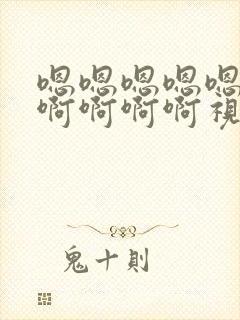 嗯嗯嗯嗯嗯
啊啊啊啊視
鬼十則